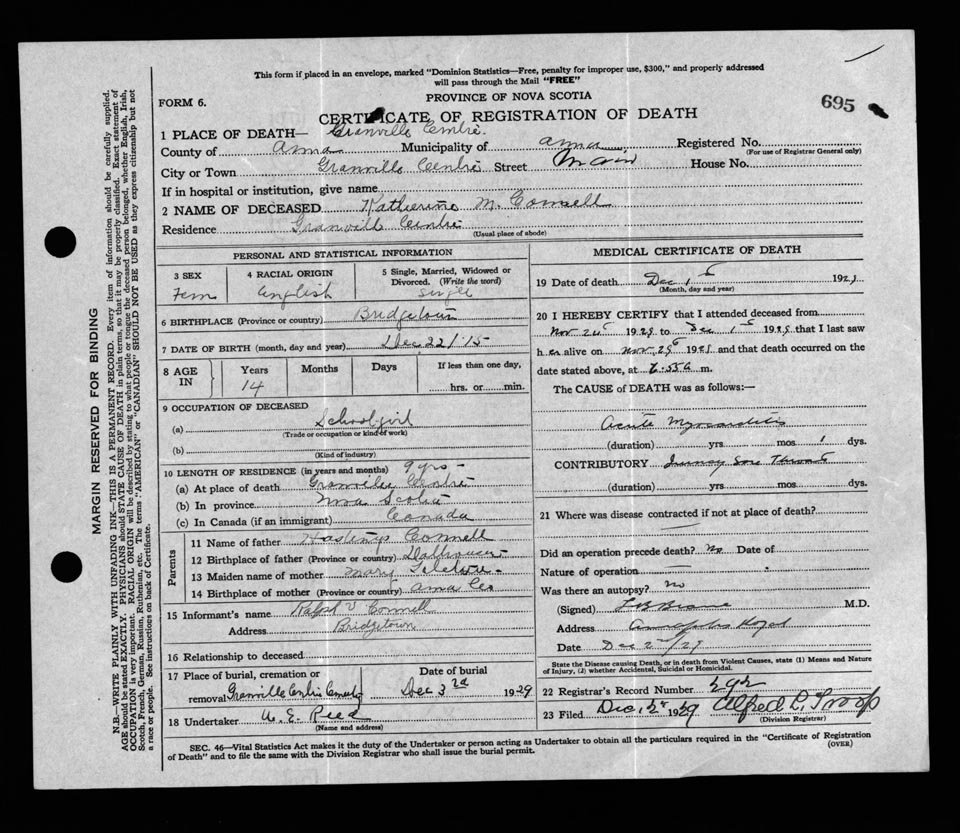 This form if placed in an envelope, marked "Dominion Statistics—Free, penalty for improper use, $300," and properly addressed
will pass through the Mail "FREE"
FORM 6.
PROVINCE OF NOVA SCOTIA
695
CERTIFICATE OF REGISTRATION OF DEATH
1 PLACE OF DEATH— Granville Centre.
County of Anna Municipality of Anna Registered No.
(For use of Registrar General only)
City or Town Granville Centre Street Main House No.
If in hospital or institution, give name
2 NAME OF DECEASED Katherine M. Connell
Residence Granville Centre
(Usual place of abode)
PERSONAL AND STATISTICAL INFORMATION
3 SEX
Fem
4 RACIAL ORIGIN
English
5 Single, Married, Widowed or
Divorced. (Write the word)
Single
6 BIRTHPLACE (Province or country) Bridgetown
7 DATE OF BIRTH (month, day and year) Dec 22/15
8 AGE IN
Years
14
Months
Days
If less than one day,
hrs. or min.
9 OCCUPATION OF DECEASED
(a) School girl
(Trade or occupation or kind of work)
(b)
(Kind of industry)
10 LENGTH OF RESIDENCE (in years and months) 9 yrs -
(a) At place of death Granville Centre
(b) In province Nova Scotia
(c) In Canada (if an immigrant) Canada
Parents
11 Name of father Hastings Connell
12 Birthplace of father (Province or country) Dalhousie
13 Maiden name of mother Mary
14 Birthplace of mother (Province or country) Anna Co
15 Informant's name Ralph V Connell
Address Bridgetown
16 Relationship to deceased
17 Place of burial, cremation or
removal Granville Centre Cemetery
Date of burial
Dec 3rd 1929
18 Undertaker A. E. Reed
(Name and address)
MEDICAL CERTIFICATE OF DEATH
19 Date of death Dec 1st 1929
(Month, day and year)
20 I HEREBY CERTIFY that I attended deceased from
Nov 24 1929 to Dec 1st 1929 that I last saw
h er alive on Nov 29 1929 and that death occurred on the
date stated above, at 6.55 a m.
The CAUSE of DEATH was as follows:—
Acute Myocarditis
(duration) yrs mos 1 dys.
CONTRIBUTORY Sore Throat
(duration) yrs. mos. dys.
21 Where was disease contracted if not at place of death?
Did an operation precede death? No Date of
Nature of operation
Was there an autopsy? No
(Signed) M.D.
Address Annapolis Royal
Date Dec 2/29
State the Disease causing Death, or in death from Violent Causes, state (1) Means and Nature
of Injury, (2) whether Accidental, Suicidal or Homicidal.
22 Registrar's Record Number 292
23 Filed Dec. 12 1929 Alfred L. Troop
(Division Registrar)
SEC. 46—Vital Statistics Act makes it the duty of the Undertaker or person acting as Undertaker to obtain all the particulars required in the "Certificate of Registration
of Death" and to file the same with the Division Registrar who shall issue the burial permit.
(OVER)
MARGIN RESERVED FOR BINDING
N.B.—WRITE PLAINLY WITH UNFADING INK—THIS IS A PERMANENT RECORD. Every item of information should be carefully supplied.
AGE should be stated EXACTLY. PHYSICIANS should STATE CAUSE OF DEATH in plain terms, so that it may be properly classified. Exact statement of
OCCUPATION is very important. RACIAL ORIGIN will be described by stating to what people or tongue the deceased person belonged, whether English, Irish,
Scotch, French, German, Russian, Ruthenian, etc. The terms "AMERICAN" or "CANADIAN" SHOULD NOT BE USED as they express citizenship but not
a race or people. See instructions on back of Certificate.